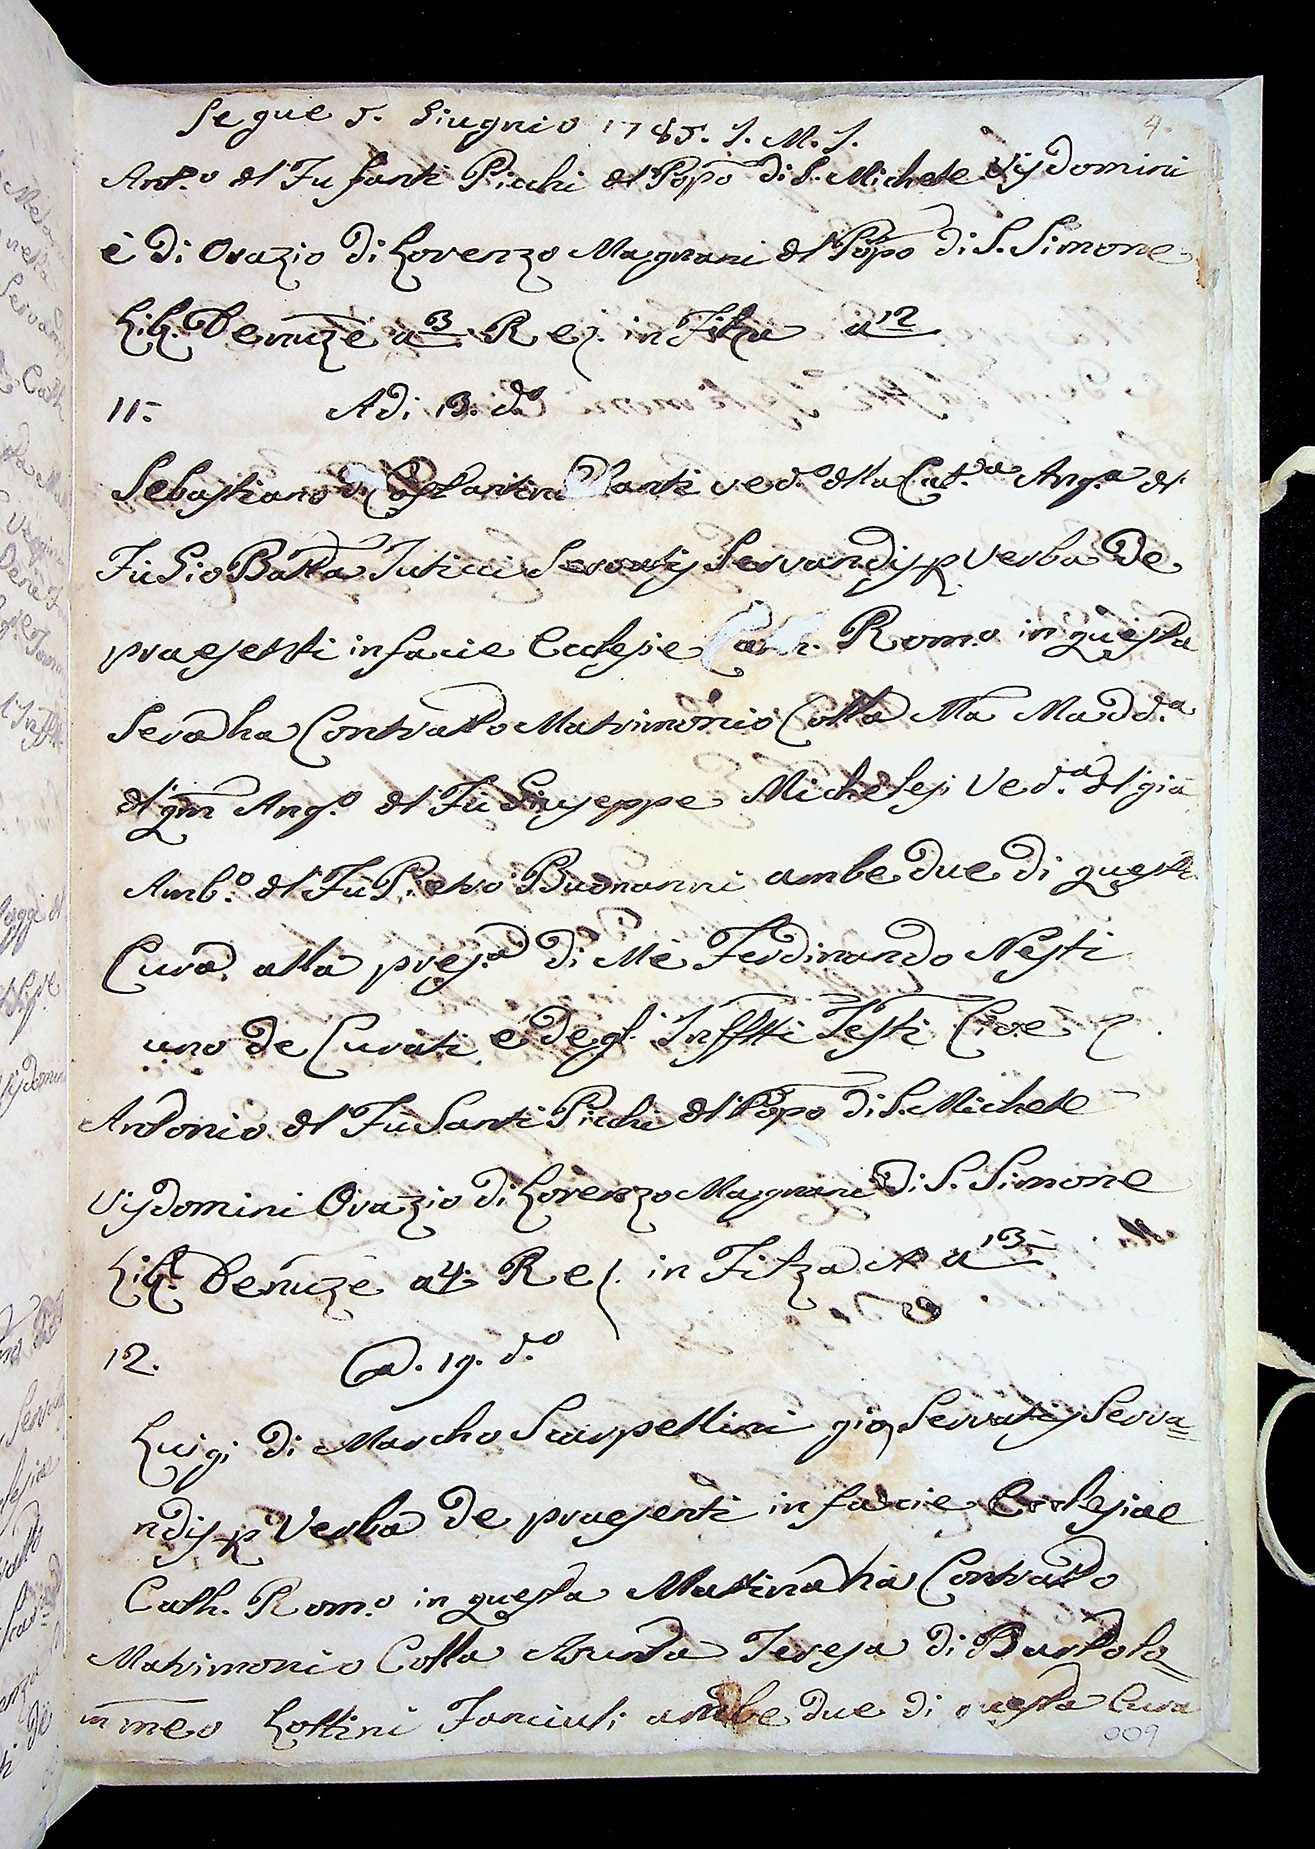 Segue 5. Giugnio 1785. J. M. J. 4.
Ant.o dl Fu Santi Picchi dl Popo di S. Michele Visdomini
è di Orazio di Lorenzo Magnani dl Popo di S. Simone
Lib. Denunze a 3. Res. in Filza a 12
11. Adi 13. d.o
Sebastiano di Costantino Santi ved.o dlla Cat.a Ang.a dl
Fu Gio Batta Servatis Servandis p Verba De
praesenti in facie Ecclesie Rom.o in questa
Sera ha Contratto Matrimonio Colla Ma Madd.a
dl qm Ang.o dl Fu Giuseppe Michelesi Ved.a dl già
Amb.o dl Fu Pietro Buonanni ambe due di questa
Cura, alla pres.a di Me Ferdinando Nesti
uno de Curati e degl' Infftti Testi Cioe
Antonio dl Fu Santi Picchi dl Popo di S. Michele
Visdomini Orazio di Lorenzo Magnani di S. Simone
Lib. Denunze a 4. Res. in Filza a 13
12. A. 19. d.o
Luigi di Marcho Scarpellini gio, Servatis Serva=
ndis p Verba de praesenti in faccie Ecclesiae
Cath. Rom.o in questa Mattina ha Contratto
Matrimonio Colla Asunta Teresa di Bartolo
mmeo Lottini Fanciuli ambe due di questa Cura
009